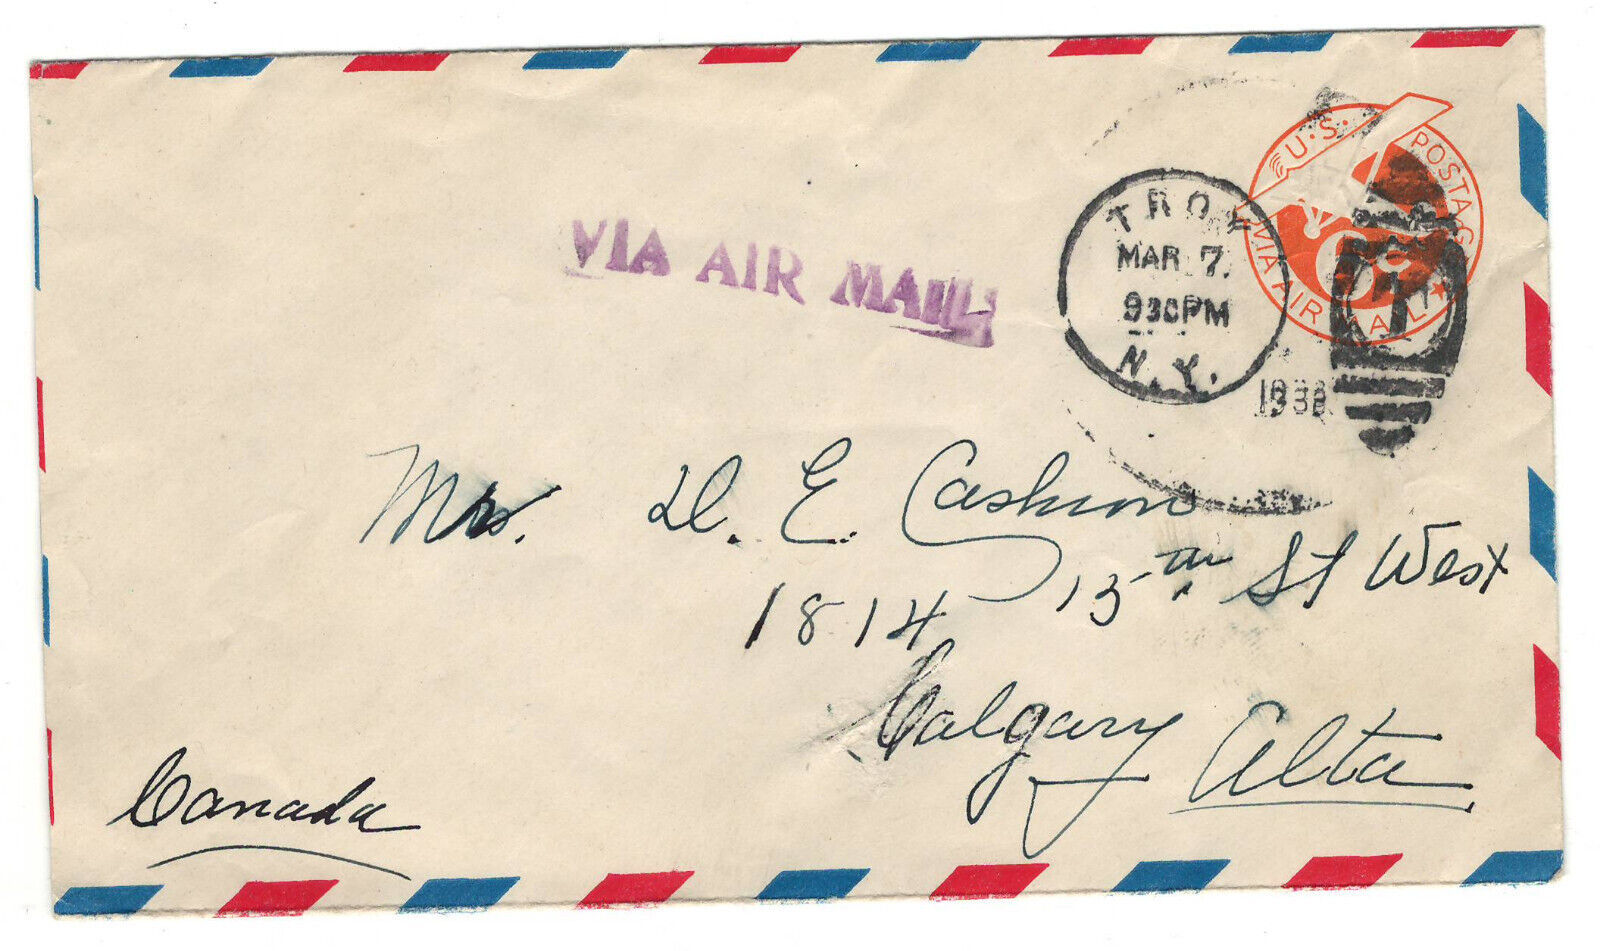 U.S. POSTAGE
VIA AIR MAIL
6c
TROY
MAR 7.
930PM
N.Y.
1938
VIA AIR MAIL
Mrs. D. E. Cashion
1814 15th St West
Calgary Alta
Canada